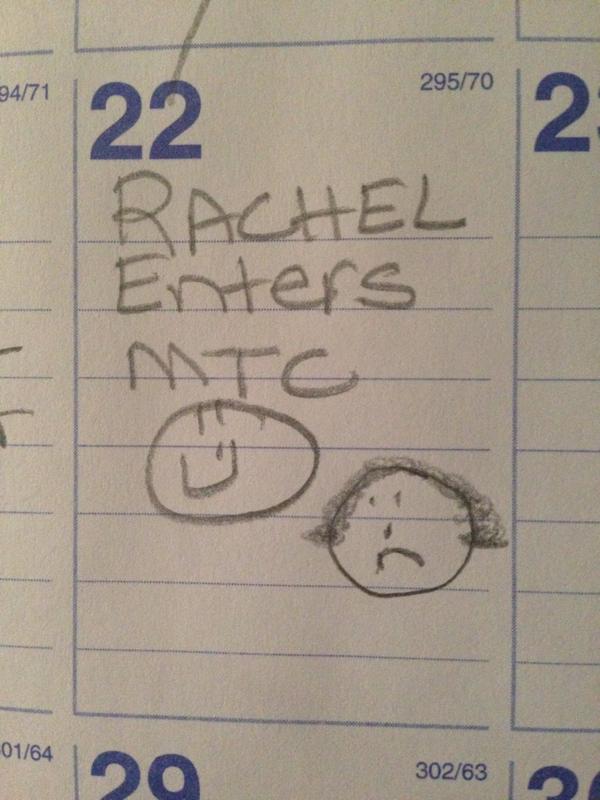 94/71
22
295/70
2
RACHEL
Enters
MTC
01/64
29
302/63